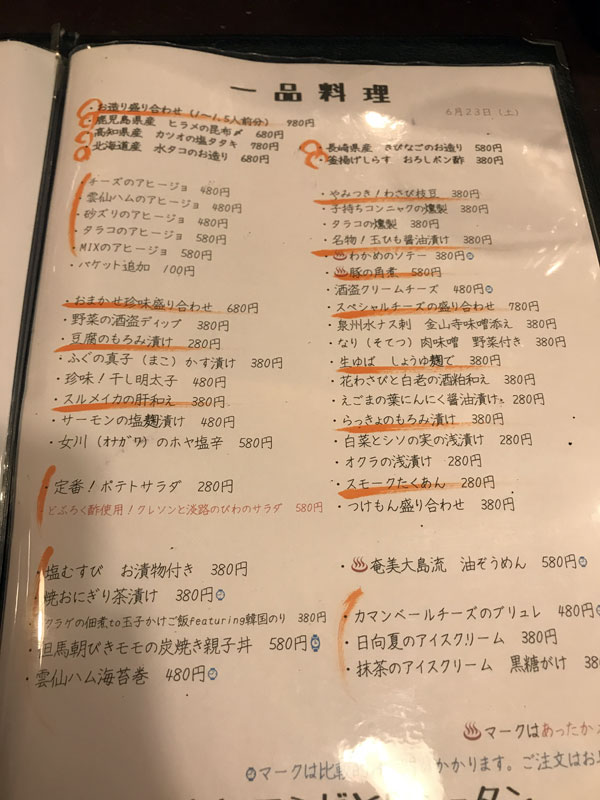 一品料理
6月23日(土)
・お造り盛り合わせ(1〜1.5人前分) 980円
・鹿児島県産 ヒラメの昆布〆 680円
・高知県産 カツオの塩タタキ 780円
・北海道産 水タコのお造り 680円
・長崎県産 きびなごのお造り 580円
・釜揚げしらす おろしポン酢 380円
・チーズのアヒージョ 480円
・雲仙ハムのアヒージョ 480円
・砂ズリのアヒージョ 480円
・タラコのアヒージョ 580円
・MIXのアヒージョ 580円
・バケット追加 100円
・おまかせ珍味盛り合わせ 680円
・野菜の酒盗ディップ 380円
・豆腐のもろみ漬け 280円
・ふぐの真子(まこ)かす漬け 380円
・珍味!干し明太子 480円
・スルメイカの肝和え 380円
・サーモンの塩麹漬け 480円
・女川(オナガワ)のホヤ塩辛 580円
・定番!ポテトサラダ 280円
・どぶろく酢使用!クレソンと淡路のびわのサラダ 580円
・塩むすび お漬物付き 380円
・焼おにぎり茶漬け 380円
クラゲの佃煮to玉子かけご飯featuring韓国のり 380円
・但馬朝びきモモの炭焼き親子丼 580円
・雲仙ハム海苔巻 480円
・やみつき!わさび枝豆 380円
・子持ちコンニャクの燻製 380円
・タラコの燻製 380円
・名物!玉ひも醤油漬け 380円
・♨わかめのソテー 380円
・♨豚の角煮 580円
・酒盗クリームチーズ 480円
・スペシャルチーズの盛り合わせ 780円
・泉州水ナス刺 金山寺味噌添え 380円
・なり(そてつ)肉味噌 野菜付き 380円
・生ゆば しょうゆ麹で 380円
・花わさびと白老の酒粕和え 380円
・えごまの葉にんにく醤油漬け 280円
・らっきょのもろみ漬け 380円
・白菜とシソの実の浅漬け 280円
・オクラの浅漬け 280円
・スモークたくあん 280円
・つけもん盛り合わせ 380円
・♨奄美大島流 油ぞうめん 580円
・カマンベールチーズのブリュレ 480円
・日向夏のアイスクリーム 380円
・抹茶のアイスクリーム 黒糖がけ 38
♨マークはあったか
マークは比較 かかります。ご注文はお